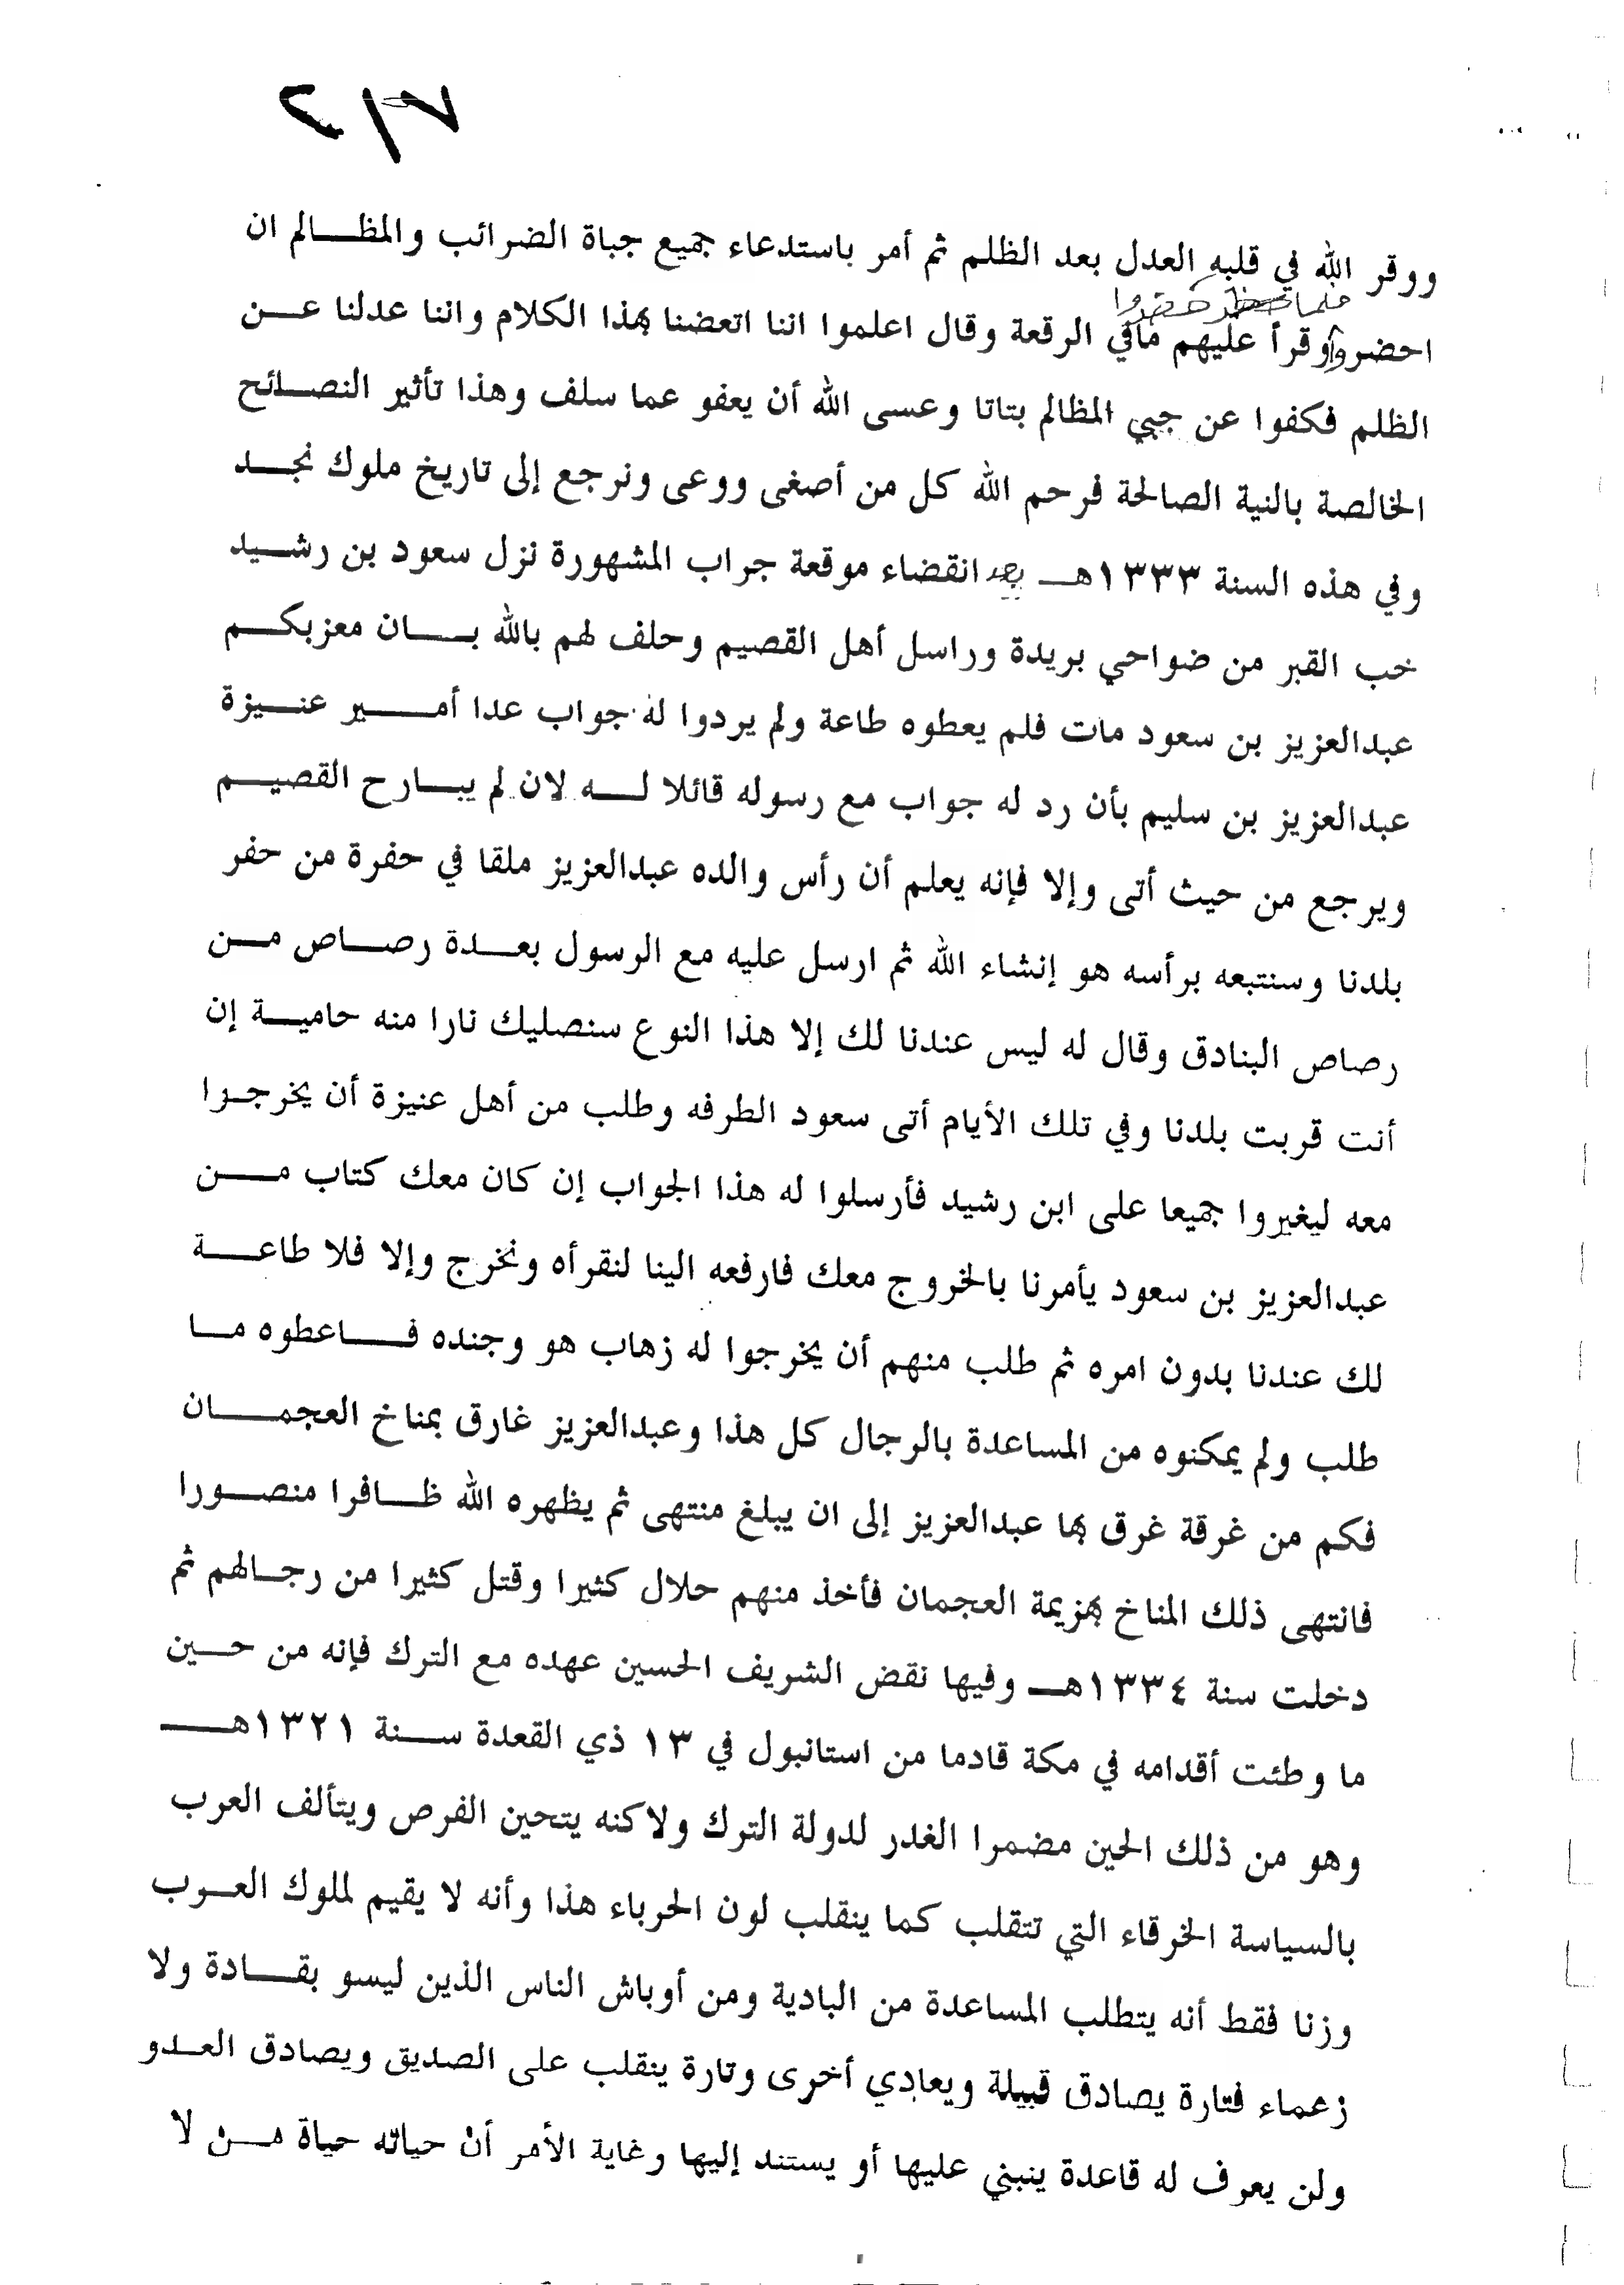 ٢١٧
ووقر الله في قلبه العدل بعد الظلم ثم أمر باستدعاء جميع جباة الضرائب والمظالم ان
فلما حضروا
احضروا وقرأ عليهم مافي الرقعة وقال اعلموا اننا اتعضنا بهذا الكلام واننا عدلنا عن
الظلم فكفوا عن جبي المظالم بتاتا وعسى الله أن يعفو عما سلف وهذا تأثير النصائح
الخالصة بالنية الصالحة فرحم الله كل من أصغى ووعى ونرجع إلى تاريخ ملوك نجد
وفي هذه السنة ١٣٣٣هـ بعد انقضاء موقعة جراب المشهورة نزل سعود بن رشيد
خب القبر من ضواحي بريدة وراسل أهل القصيم وحلف لهم بالله بان معزبكم
عبدالعزيز بن سعود مات فلم يعطوه طاعة ولم يردوا له جواب عدا أمير عنيزة
عبدالعزيز بن سليم بأن رد له جواب مع رسوله قائلا له لان لم يبارح القصيم
ويرجع من حيث أتى وإلا فإنه يعلم أن رأس والده عبدالعزيز ملقا في حفرة من حفر
بلدنا وسنتبعه برأسه هو إنشاء الله ثم ارسل عليه مع الرسول بعدة رصاص من
رصاص البنادق وقال له ليس عندنا لك إلا هذا النوع سنصليك نارا منه حامية إن
أنت قربت بلدنا وفي تلك الأيام أتى سعود الطرفه وطلب من أهل عنيزة أن يخرجوا
معه ليغيروا جميعا على ابن رشيد فأرسلوا له هذا الجواب إن كان معك كتاب من
عبدالعزيز بن سعود يأمرنا بالخروج معك فارفعه الينا لنقرأه ونخرج وإلا فلا طاعة
لك عندنا بدون امره ثم طلب منهم أن يخرجوا له زهاب هو وجنده فاعطوه ما
طلب ولم يمكنوه من المساعدة بالرجال كل هذا وعبدالعزيز غارق بمناخ العجمان
فكم من غرقة غرق بها عبدالعزيز إلى ان يبلغ منتهى ثم يظهره الله ظافرا منصورا
فانتهى ذلك المناخ بهزيمة العجمان فأخذ منهم حلال كثيرا وقتل كثيرا من رجالهم ثم
دخلت سنة ١٣٣٤هـ وفيها نقض الشريف الحسين عهده مع الترك فإنه من حين
ما وطئت أقدامه في مكة قادما من استانبول في ١٣ ذي القعدة سنة ١٣٢١هـ
وهو من ذلك الحين مضمرا الغدر لدولة الترك ولاكنه يتحين الفرص ويتألف العرب
بالسياسة الخرقاء التي تتقلب كما ينقلب لون الحرباء هذا وأنه لا يقيم لملوك العرب
وزنا فقط أنه يتطلب المساعدة من البادية ومن أوباش الناس الذين ليسو بقادة ولا
زعماء فتارة يصادق قبيلة ويعادي أخرى وتارة ينقلب على الصديق ويصادق العدو
ولن يعرف له قاعدة ينبني عليها أو يستند إليها وغاية الأمر أن حياته حياة من لا